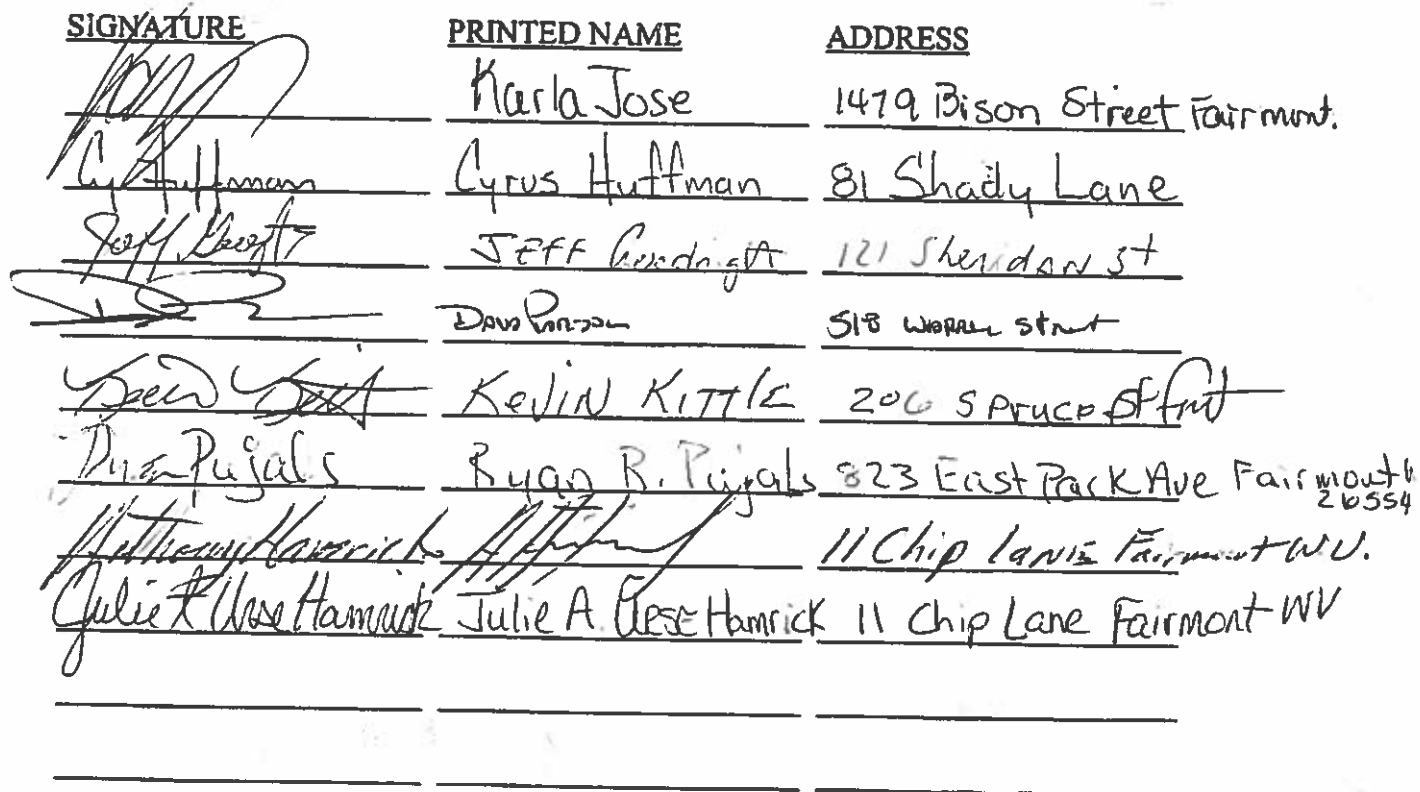 SIGNATURE PRINTED NAME ADDRESS
Karla Jose 1479 Bison Street Fairmont.
Cy Huffman Cyrus Huffman 81 Shady Lane
Jeff JEFF 121 Sheridan st
518 street
Kevin KITTLE 206 Spruce St
Pujals Ryan R. Pujals 823 East Park Ave Fairmont
26554
Hamrick 11 Chip Lane Fairmont WV.
Julie A Urse Hamrick Julie A. Urse Hamrick 11 Chip Lane Fairmont WV